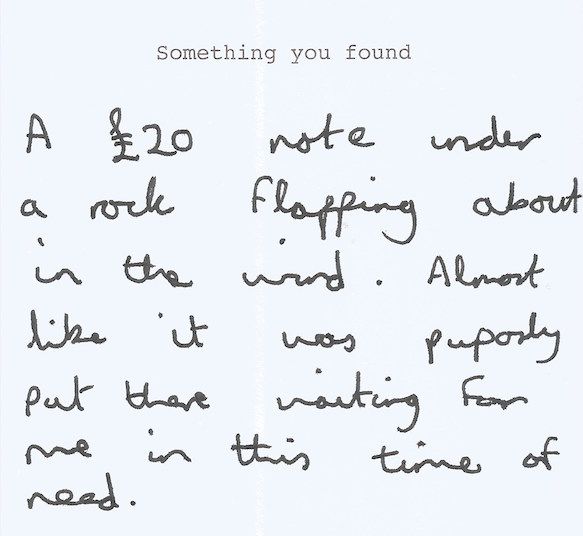 Something you found
A £20 note under
a rock flapping about
in the wind. Almost
like it was puposly
put there waiting for
me in this time of
need.